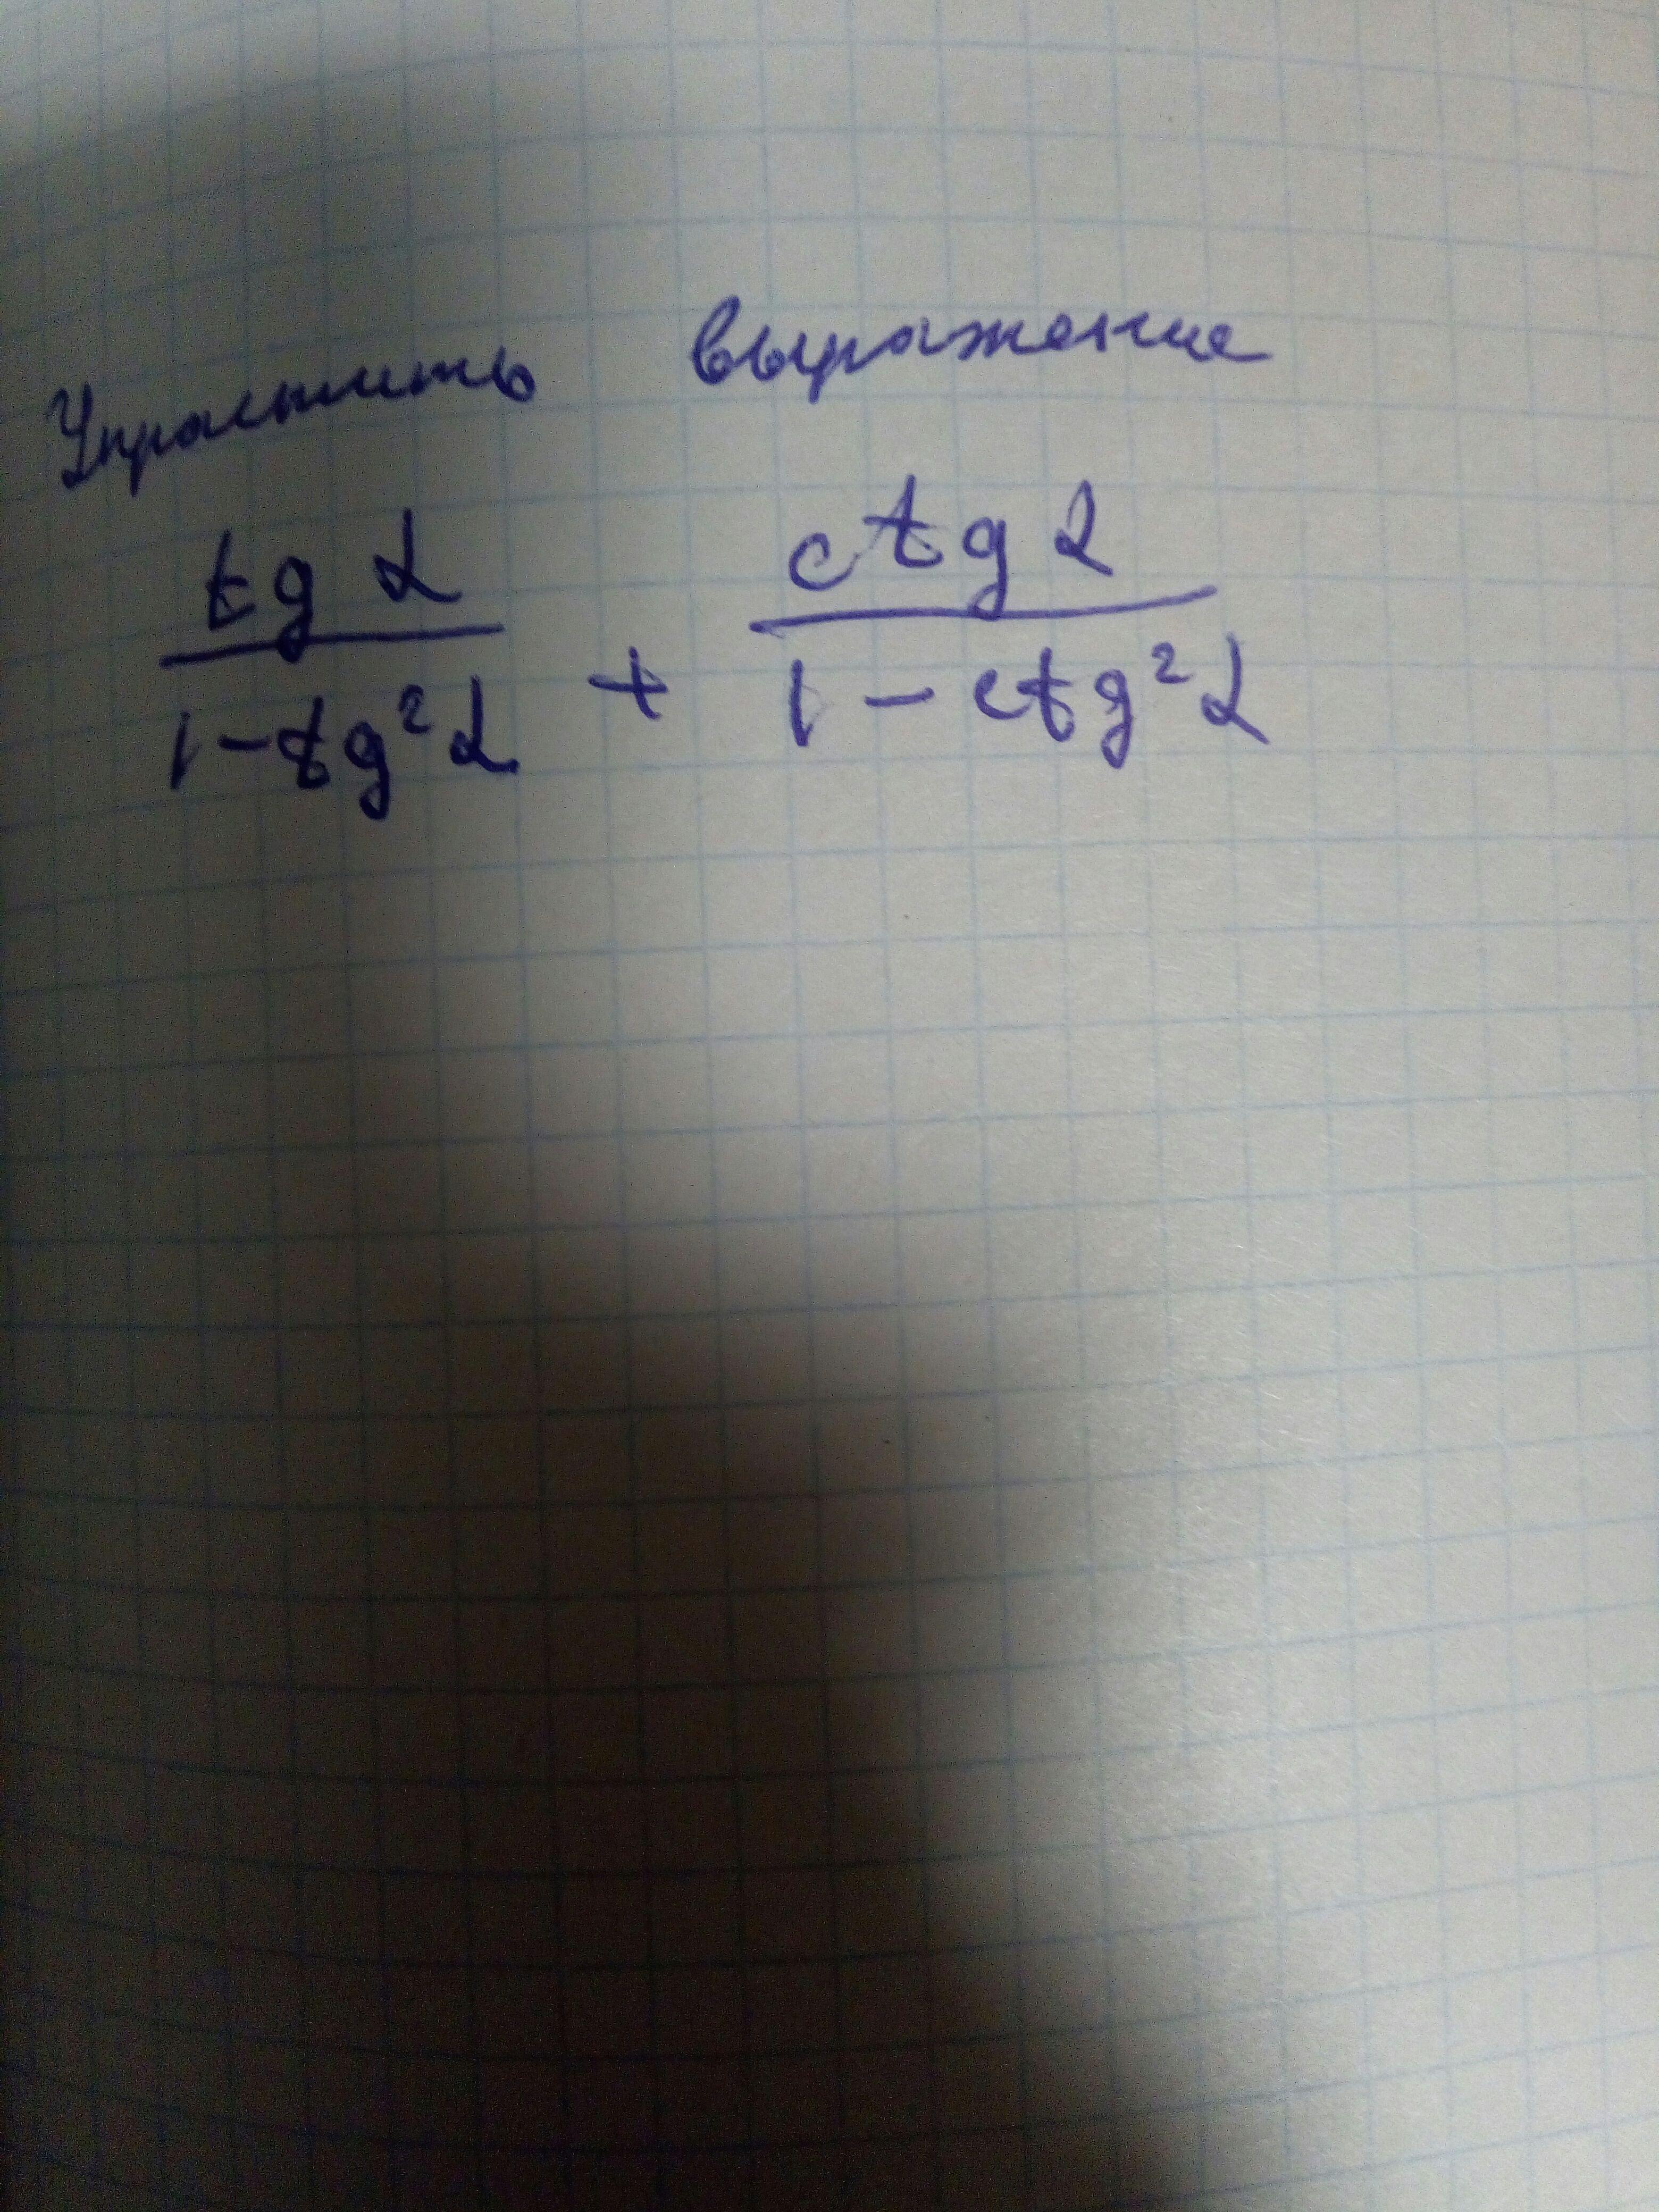 Упростить выражение
tg α / 1 - tg² α + ctg α / 1 - ctg² α